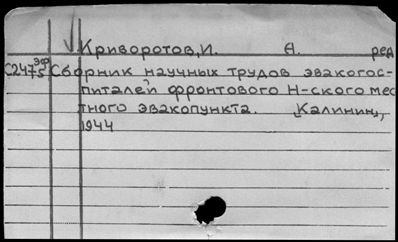 Криворотов, И. А. ред
С2475 эвг Сборник научных трудов эвакогос-
питалей фронтового Н-ского мес
тного эвакопункта. Калинин,
1944